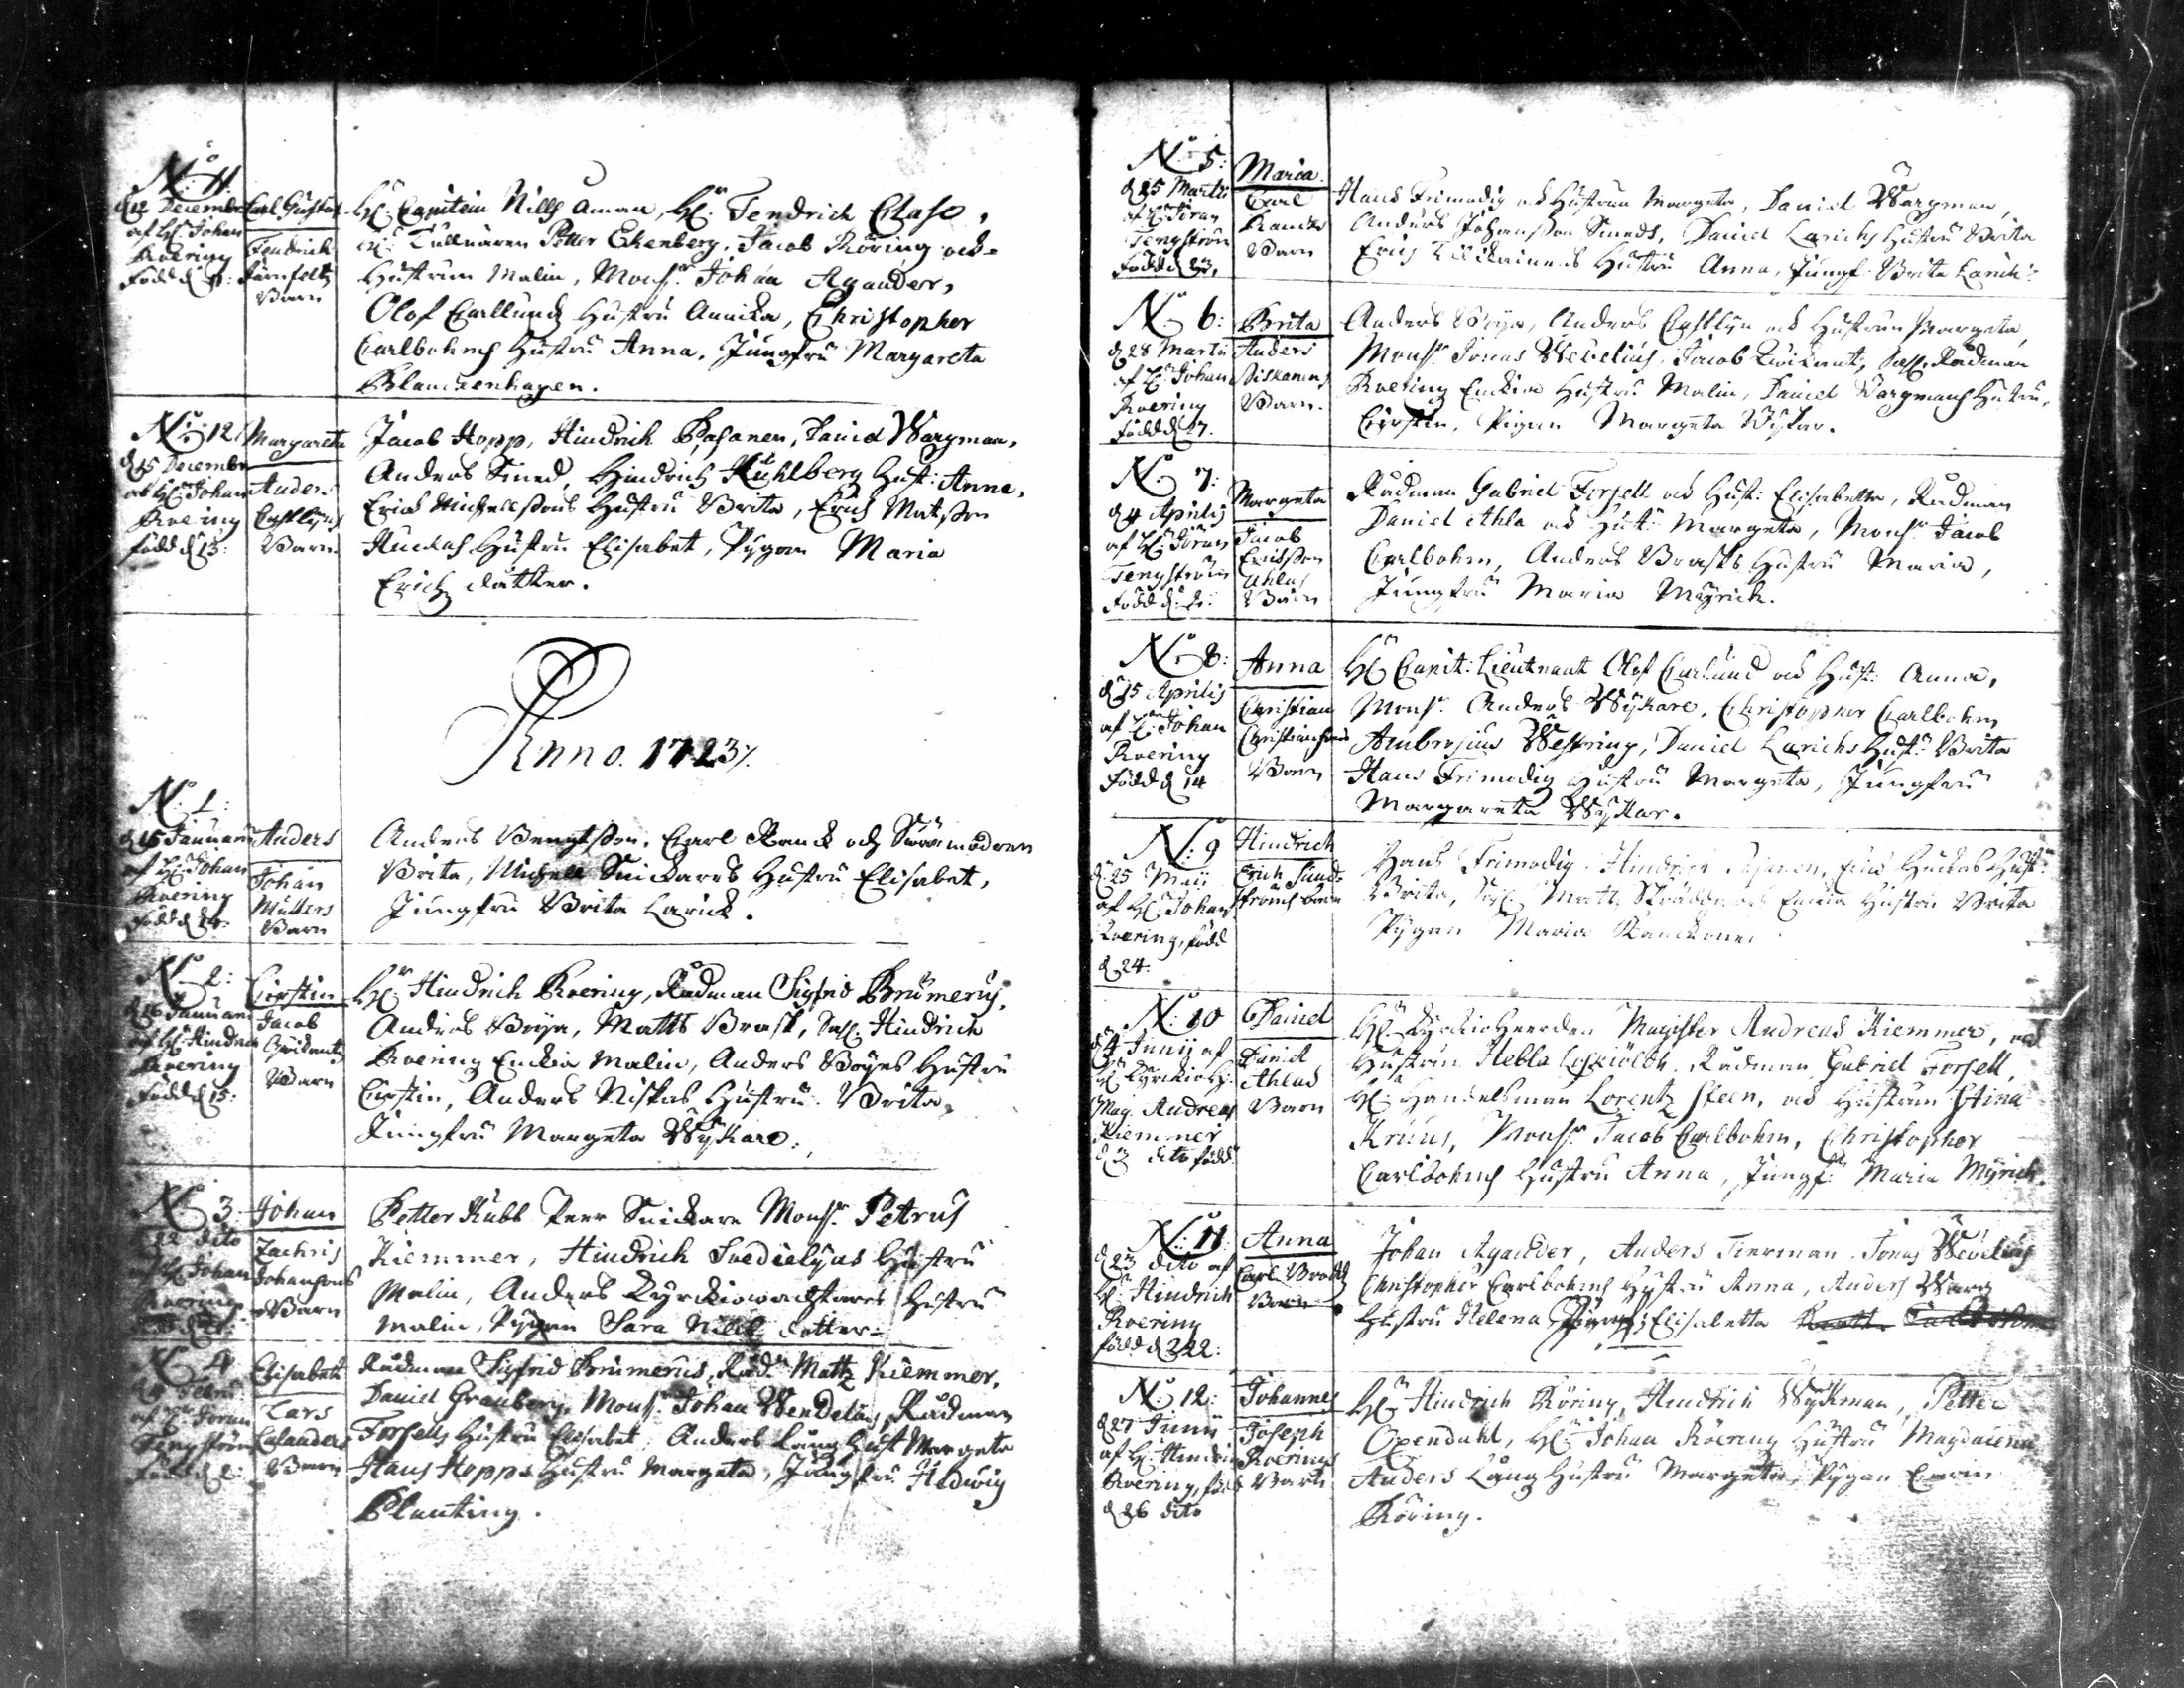 No 11:
d 12 Decembr
af H: Johan
Roering
född d
Carl Gustaf
Fendrich
Barn
H: Capitein Nills Aman, H: Fendrich
Tullnären Petter Ekenberg, Jacob Röring och
Hustrun Malin, Mons: Johan Agander,
Olof Carllunds Hustru Annika, Christopher
Carlbohms Hustru Anna, Jungfru Margareta
Blanckenhagen.
No 12
d 15 Decembr
af H: Johan
Roering
född d 13:
Margareta
Anders
Barn
Jacob Hopp, Hindrich Pasanen, David Wargman,
Anders Smed, Hindrich Kühlberg Hust: Anna,
Erich Michelssons Hustru Brita, Erich Matsson
Hustru Elisabet, Pygan Maria
Erichz dåtter.
Anno. 1723
No 1:
d 15 Januari
af H: Johan
Roering
född d
Anders
Johan
Mullers
Barn
Anders Bengtsson, Carl Ranck och Swärmodren
Brita, Michell Snickares Hustru Elisabet,
Jungfru Brita Larick.
No 2:
d 16 Januari
af H: Hindrich
Roering
född d 15:
Cirstin
Jacob
Barn
H: Hindrich Roering, Rådman Sigfrid Brumerus,
Anders Böya, Matts Brask, Sal: Hindrich
Roering Enckia Malin, Anders Böyas Hustru
Cirstin, Anders Niskas Hustru Brita,
Jungfru Margeta Wykare.
No 3
d 22 dito
af H: Johan
Roering
Johan
Zachris
Johansons
Barn
Petter Kubb Snickare Mons: Petrus
Kiemmer, Hindrich Hustru
Malin, Anders Kyrckiowachtares Hustru
Malin, Pygan Sara Nills dotter.
No 4
d Febru
af H: Jöran
Tengström
född d 2:
Elisabeta
Lars
Casanders
Barn
Rådman Sigfrid Brumerus, Råd: Mattz Kiemmer,
Daniel Granberg, Mons: Johan Wendelius, Rådman
Forsells Hustru Elisabet, Anders Lång Hust Margeta
Hans Hopps Hustru Margeta, Jungfru Hedwig
Planting.
No 5:
d 25 Martii
af H: Jöran
Tengström
född d 23,
Maria
Carl
Rancks
Barn
Hans Frimodig och Hustrun Margeta, Daniel Wargman,
Anders Johansson Smeds, Daniel Larichs Hustru Brita
Erich Hustru Anna, Jungf: Brita Larich
No 6:
d 28 Martii
af H: Johan
Roering
född d 27.
Brita
Anders
Niskanens
Barn.
Anders Böya, Anders och Hustrun Margeta,
Mons: Jonas Webelius, Jacob Sal: Rådman
Roering Enckia Hustru Malin, Daniel Wargmans Hustru,
Cirstin, Pigan Margeta
No 7:
d 4 Aprilis
af H: Jöran
Tengström
född d: 2:
Margeta
Jacob
Erichsson
Ahlas
Barn
Rådman Gabriel Forsell och Hust: Elisabetta, Rådman
Daniel Ahla och Hust: Margeta, Mons: Jacob
Carlbohm, Anders Brasks Hustru Maria,
Jungfru Maria Myrich.
No 8:
d 15 Aprilis
af H: Johan
Roering
född d 14
Anna
Christian
Christiansons
Barn
H: Capit: Lieutnant Olof Carlund och Hust: Anna,
Mons: Anders Wykare, Christopher Carlbohm
Ambrosius Westring, Daniel Larichs Hust: Brita
Hans Frimodig Hustru Margeta, Jungfru
Margareta Wykar.
No 9
d 25 Maij
af H: Johan
Roering, född
d 24:
Hindrich
Erich Sund-
ströms barn
Hans Frimodig, Hindrich Pasanen, Hust:
Brita, Matts Enckia Hustru Brita
Pygan Maria
No 10
d 4 Junij af
H: Kyrckioh:
Mag: Andreas
Kiemmer
d 3 dito född
Daniel
Daniel
Ahlas
Barn
H: Kyrckioheerden Magister Andreas Kiemmer, och
Hustrun Hebla Rådman Gabriel Forsell,
H: Handelsman Lorentz Steen, och Hustrun Stina
Kruus, Mons: Jacob Carlbohm, Christopher
Carlbohms Hustru Anna, Jungf: Maria Myrich.
No 11
d 23 dito af
H: Hindrich
Roering
född d 22:
Anna
Carl
Barn
Johan Agander, Anders Jonas Webelius
Christopher Carlbohms Hustru Anna, Anders Warg
Hustru Helena, Jungf: Elisabetta
No 12:
d 27 Junij
af H: Hindrich
Roering, född
d 26 dito
Johannes
Joseph
Roerings
Barn
H: Hindrich Röring, Hindrich Wykman, Petter
Oxendahl, H: Johan Röering Hustru Magdalena
Anders Lång Hustru Margeta, Pygan Carin
Röring.